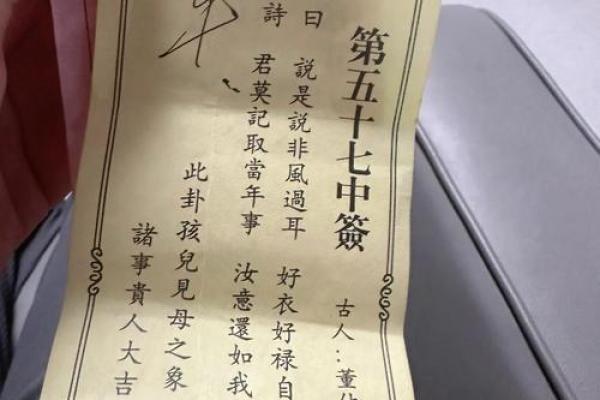 第五十七中簽
古人：董
詩曰
說是說非風過耳 好衣好禄自
君莫記取當年事 汝意還如我
此卦孩兒見母之象
諸事貴人大吉